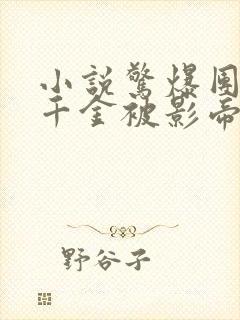 小說驚爆
千金被影帝
野谷子